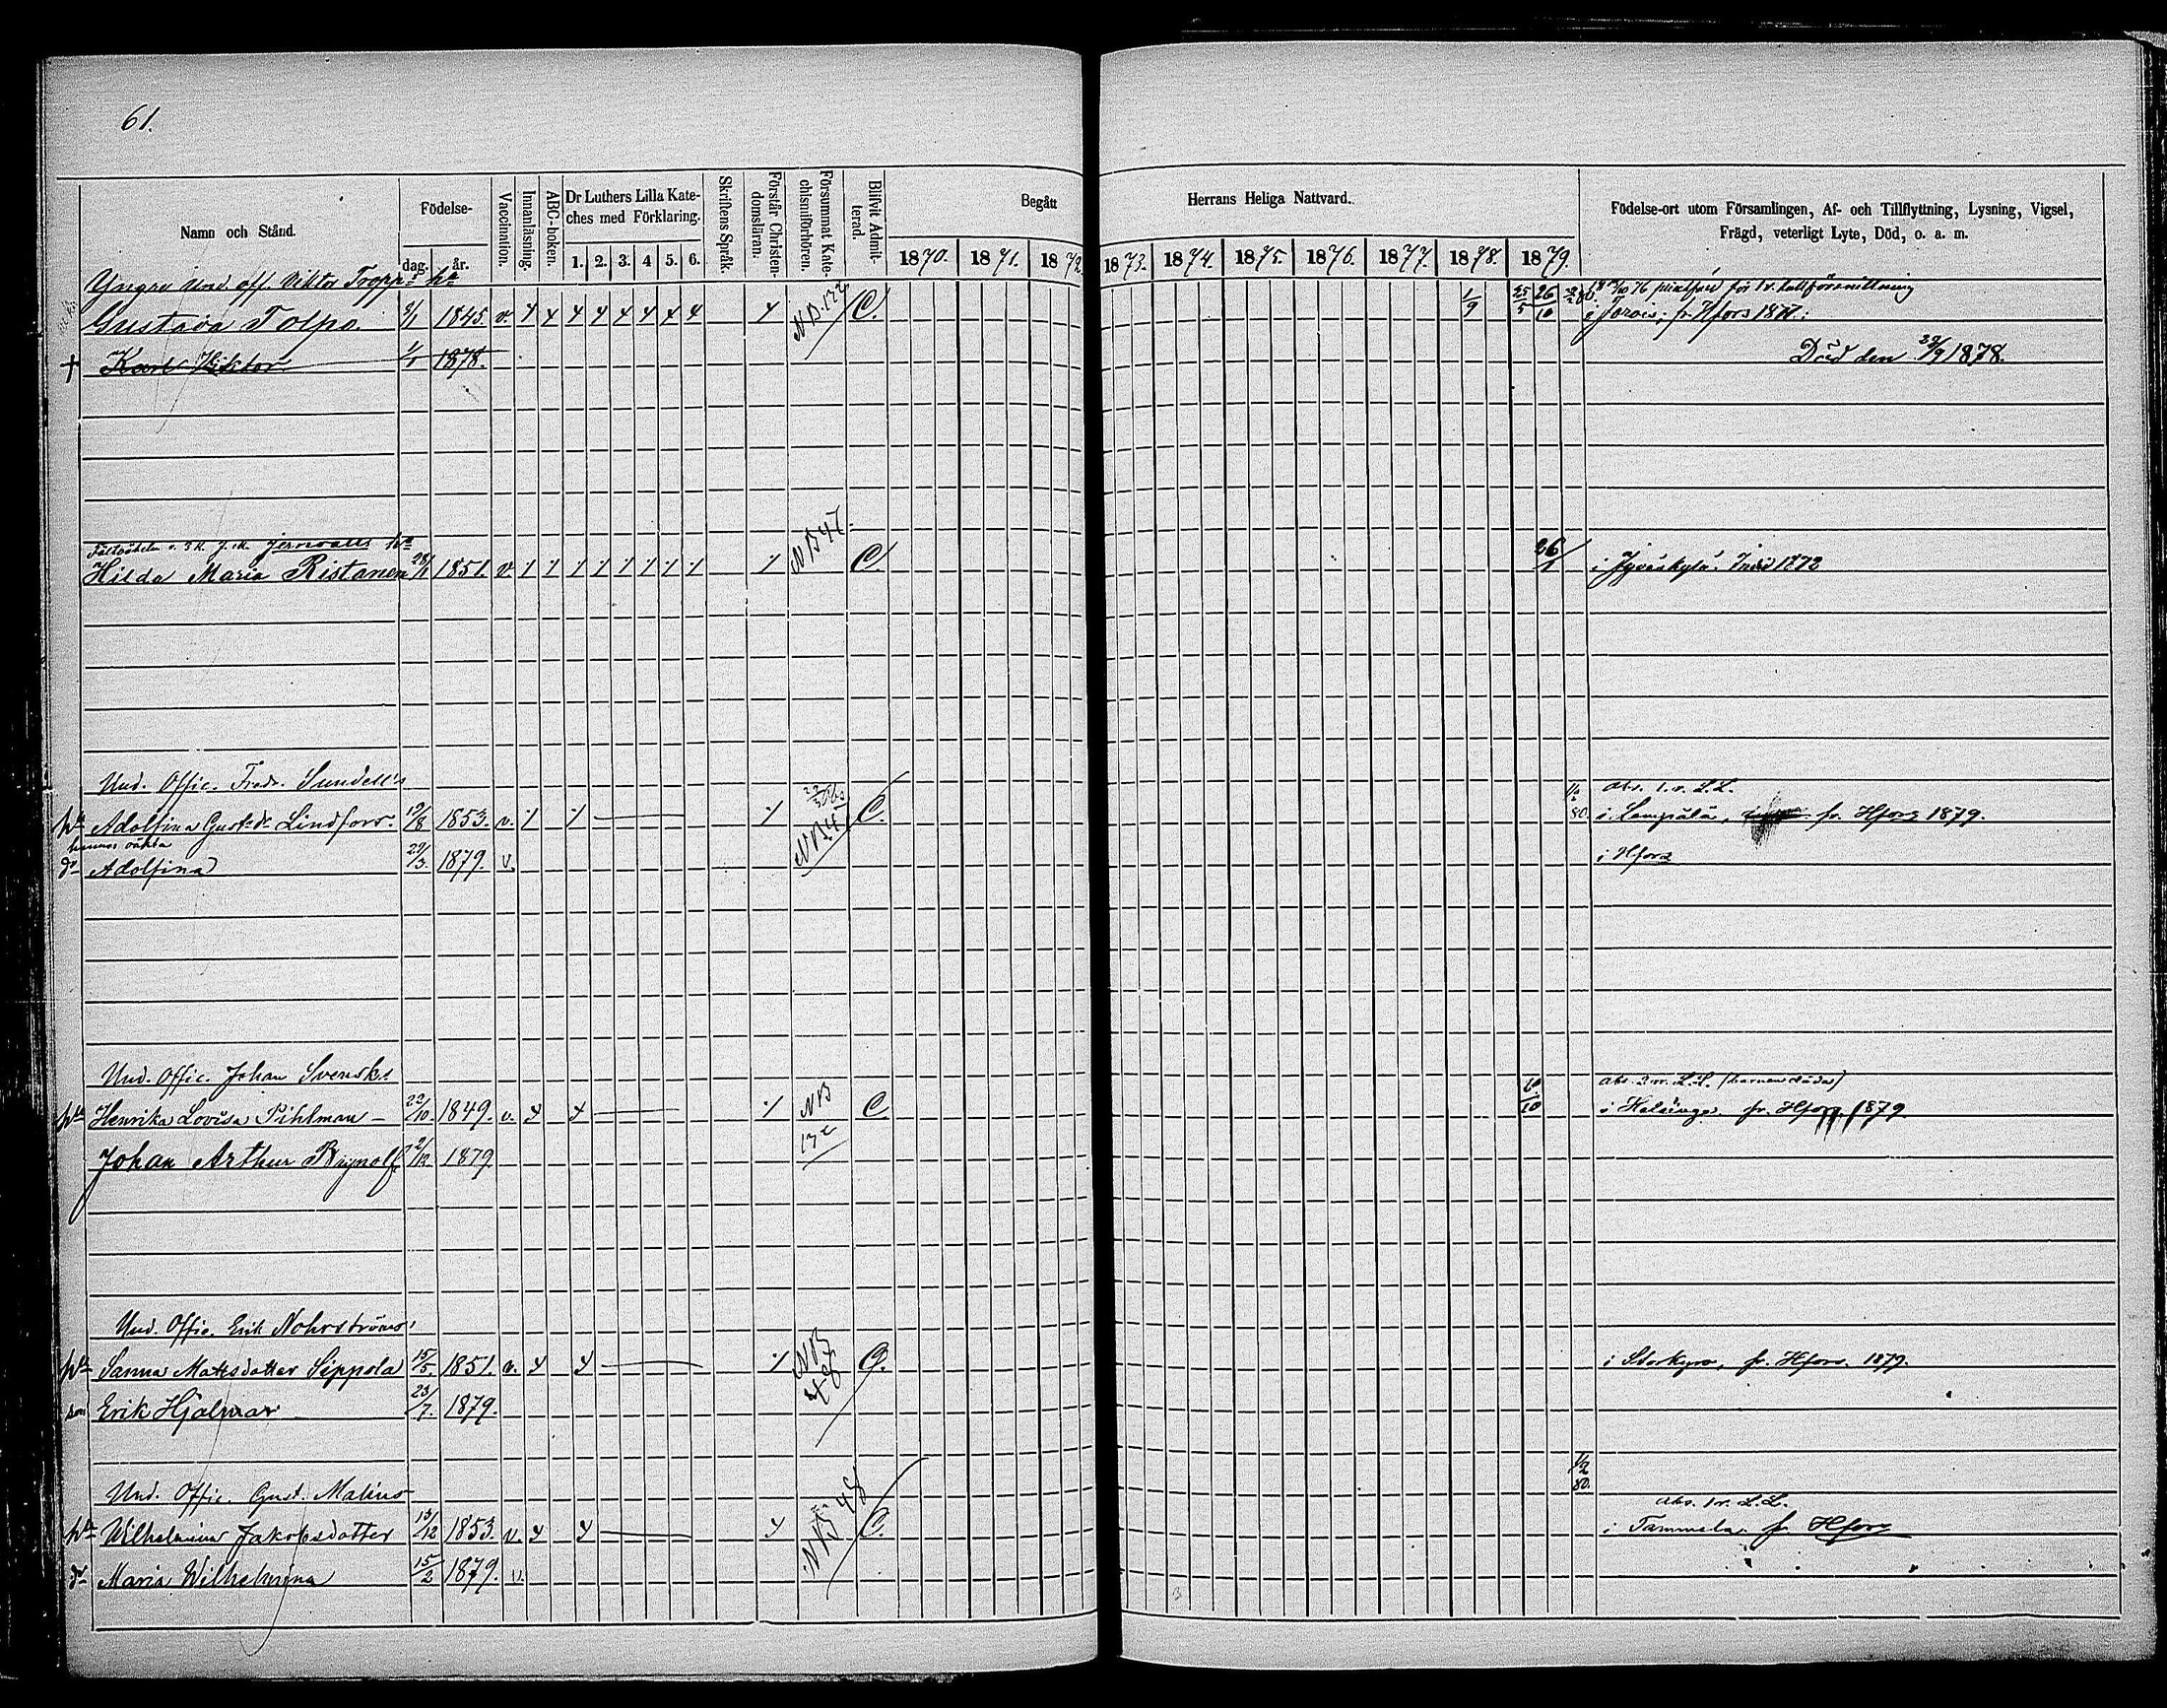 61.
Namn och Stånd.
Födelse-
dag. år.
Vaccination.
Innanläsning.
ABC-boken.
Dr Luthers Lilla Kate-
ches med Förklaring.
1. 2. 3. 4 5. 6.
Skriftens Språk.
Förstår Christen-
domsläran.
Försummat Kate-
chismiförhören.
Blifvit Admit-
terad.
Begått Herrans Heliga Nattvard.
1870. 1871. 1872. 1873. 1874. 1875. 1876. 1877. 1878. 1879.
Födelse-ort utom Församlingen, Af- och Tillflyttning, Lysning, Vigsel,
Frägd, veterligt Lyte, Död, o. a. m.
Yngre Und. off. Viktor Tropp's ha
Gustava Tolpo 1845. v. NB. 122 C. 1/9 25/5 26/10 i Jorois; fr. Hfors 1877.
† Karl Viktor 1878. Död den 22/9 1878.
Jernvalls ha
Hilda Maria Ristanen 1851. v. NB 47 C 26/1 i Jyväskylä. 1872
Und. Offic. Fredr. Sundell's
ha Adolfina Gustsdr Lindfors. 19/8 1853. v. NB 47 C. abs. 1. v. L.L.
i Lempälä, fr. Hfors 1879.
hennes oäkta
dr Adolfina 29/3. 1879. v. i Hfors
Und. Offic. Johan Svensks
ha Henrika Lovisa Pihlman 22/10. 1849. v. NB 132 C 10/10 i Helsinge. fr. Hfors. 1879.
Johan Arthur Brynolf 2/12. 1879.
Und. Offic. Erik Nohrströms
ha Sanna Mattsdotter Sippola 15/5. 1851. v. NB 48 C. i Storkyro, fr. Hfors. 1879.
son Erik Hjalmar 23/7. 1879.
Und. Offic. Gust. Malins 1/2 80.
abs. 1 v. L.L.
ha Wilhelmina Jakobsdotter 13/12 1853. v. NB 48 C. i Tammela. fr. Hfors
dr Maria Wilhelmina 15/2 1879. v.